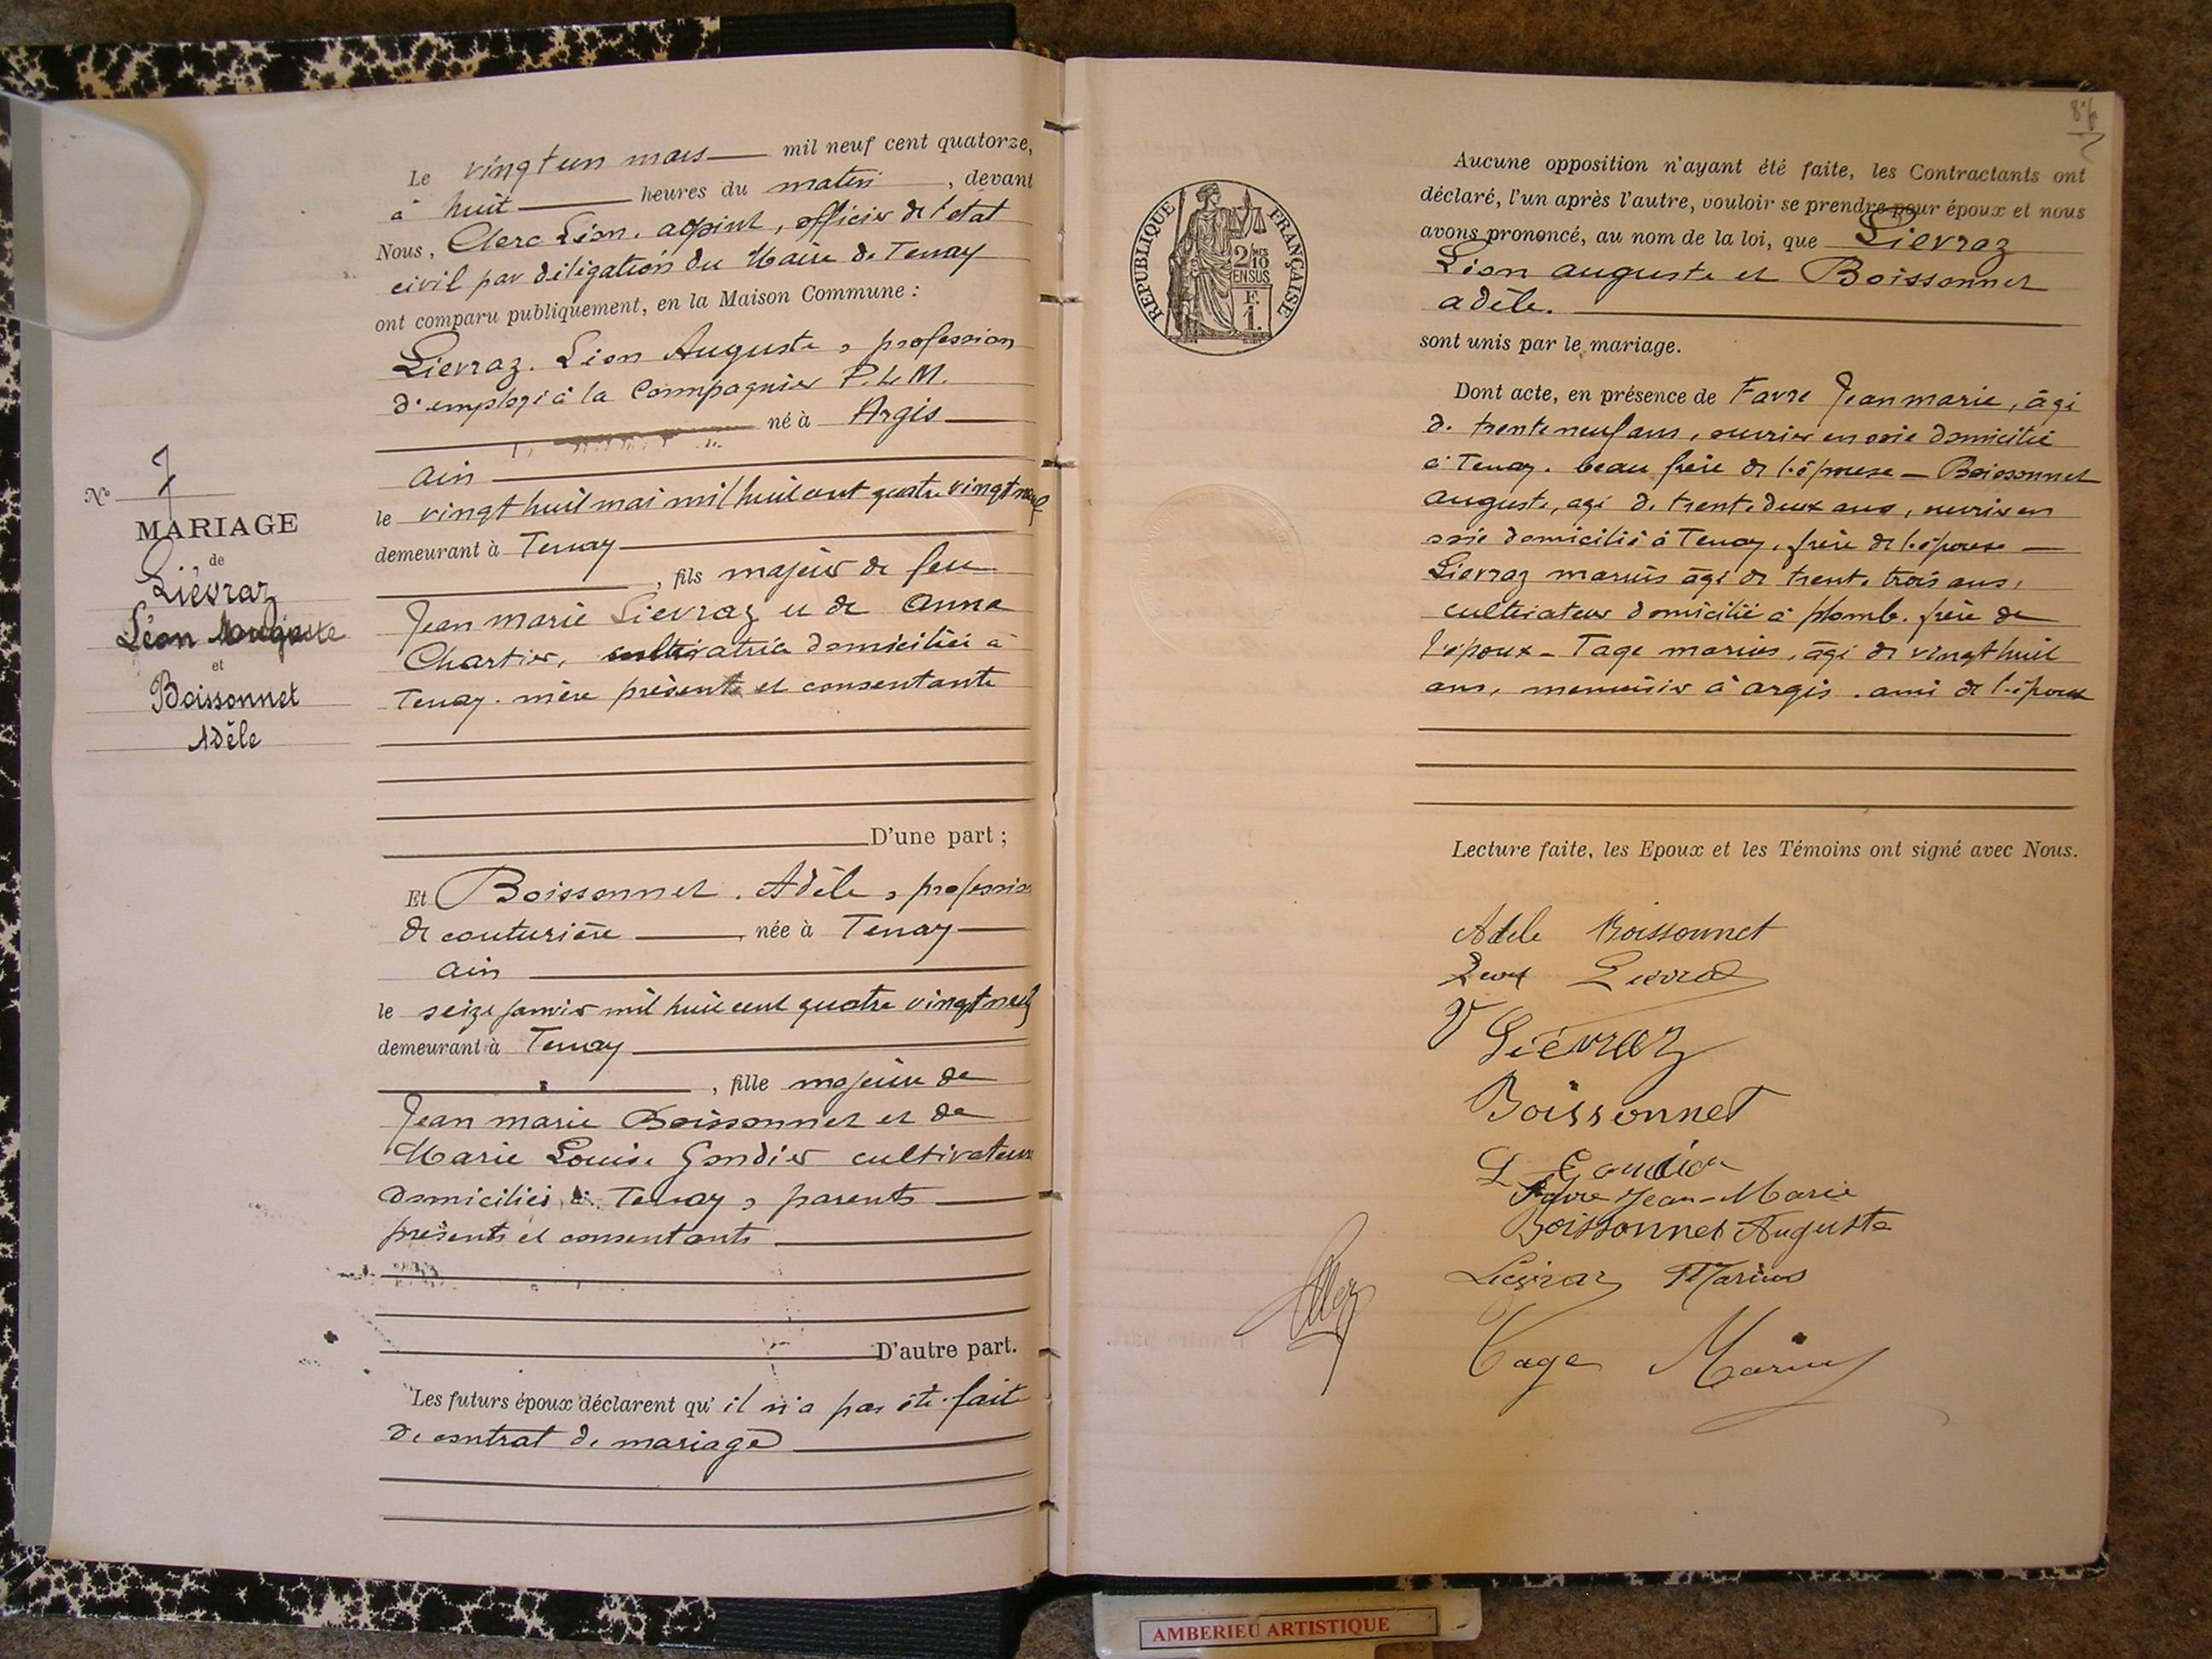 Le vingt un mars mil neuf cent quatorze,
à huit heures du matin, devant
Nous, Clerc Léon, adjoint, officier de l'état
civil par déligation du Maire de Tenay
ont comparu publiquement, en la Maison Commune :
Liévraz. Léon Auguste, profession
d'employé à la Compagnie P.L.M.
né à Argis
Ain
le vingt huit mai mil huit cent quatre vingt neuf
demeurant à Tenay
, fils majeur de feu
Jean marie Liévraz et de Anna
Chartier, cultivatrice domiciliée à
Tenay. mère présente et consentante
D'une part ;
Et Boissonnet. Adèle, profession
de couturière, née à Tenay
Ain
le seize janvier mil huit cent quatre vingt neuf
demeurant à Tenay
, fille majeure de
Jean marie Boissonnet et de
Marie Louise Gondier cultivateurs
domiciliés à Tenay, parents
présents et consentants
D'autre part.
Les futurs époux déclarent qu'il n'a pas été fait
de contrat de mariage
N° 7
MARIAGE
de
Liévraz
Léon Auguste
et
Boissonnet
Adèle
REPUBLIQUE FRANÇAISE
2/10
EN SUS
F.
1.
Aucune opposition n'ayant été faite, les Contractants ont
déclaré, l'un après l'autre, vouloir se prendre pour époux et nous
avons prononcé, au nom de la loi, que Liévraz
Léon auguste et Boissonnet
adèle.
sont unis par le mariage.
Dont acte, en présence de Favre Jean marie, âgé
de trente neuf ans, ouvrier en soie domicilié
à Tenay. beau frère de l'épouse — Boissonnet
auguste, agé de trente deux ans, ouvrier en
soie domicilié à Tenay, frère de l'épouse —
Liévraz marius âgé de trente trois ans,
cultivateur domicilié à plomb. frère de
l'époux - Tage marius, âgé de vingt huit
ans, menuisier à argis. ami de l'époux
Lecture faite, les Epoux et les Témoins ont signé avec Nous.
Adele Boissonnet
Léon Lievraz
V Liévraz
Boissonnet
L Gondier
Favre Jean-Marie
Boissonnet Auguste
Lievraz Marius
Tage Marius
AMBERIEU ARTISTIQUE